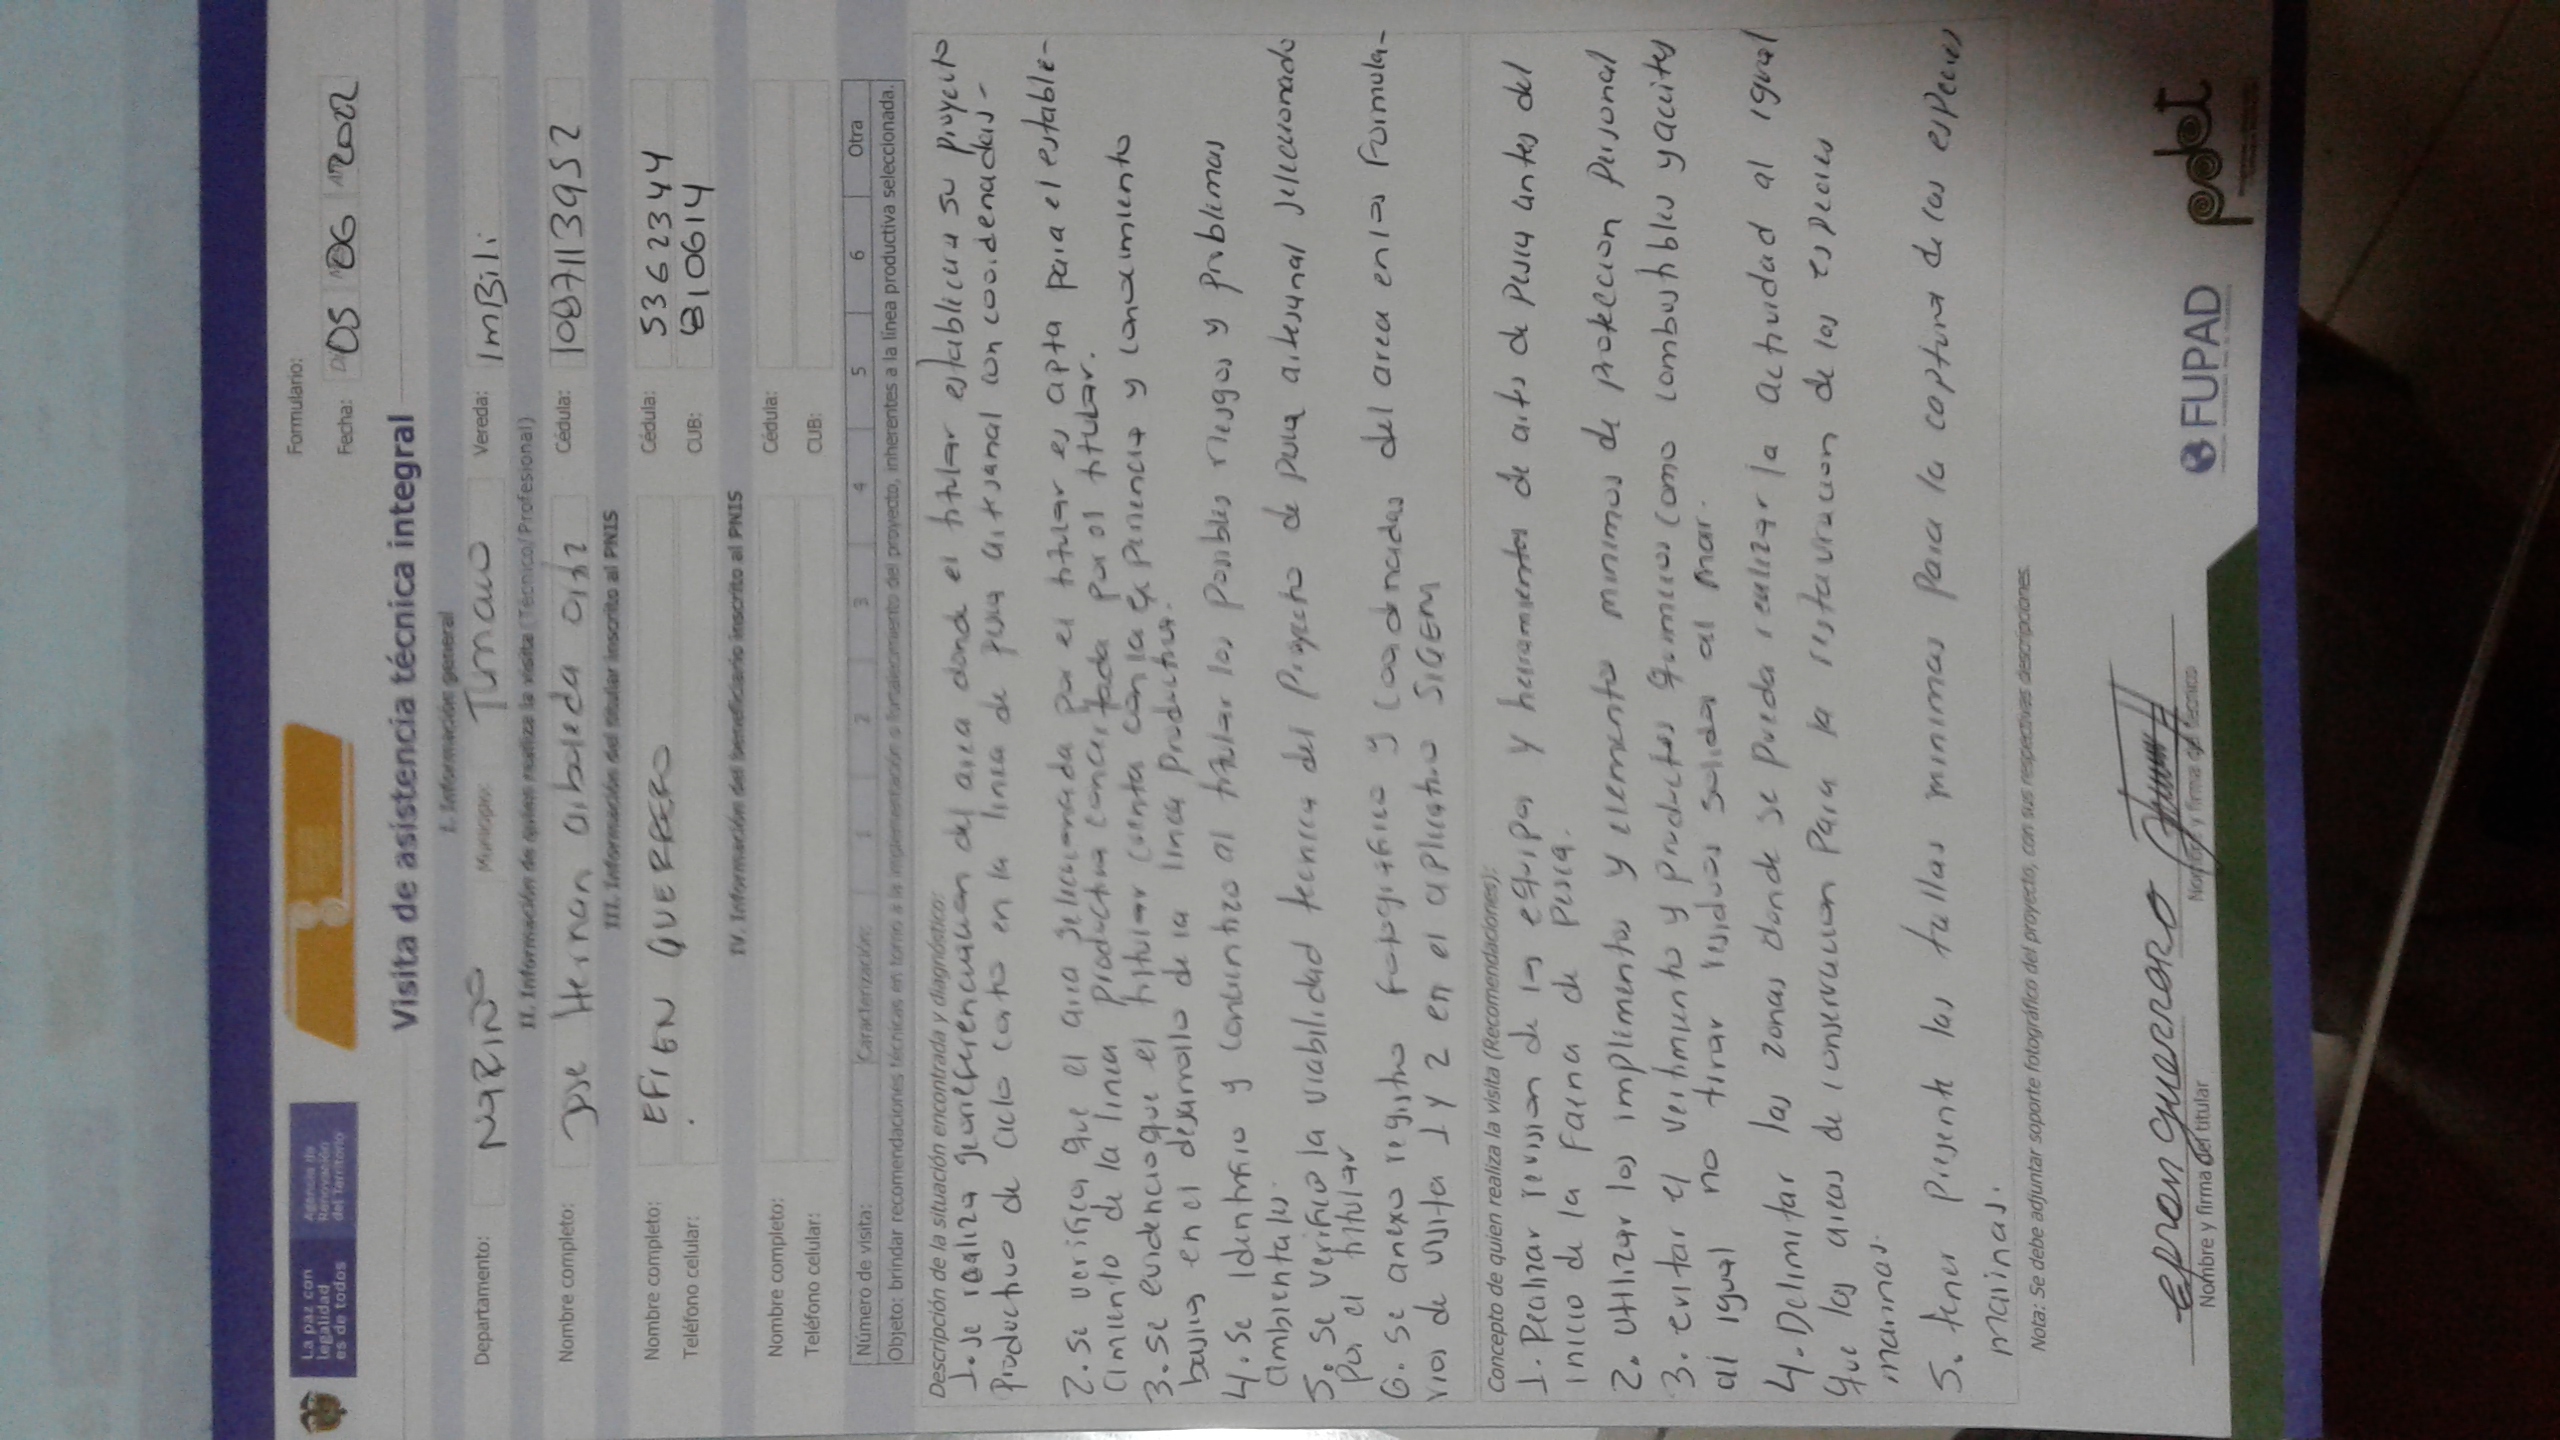 La paz con
legalidad
es de todos
Agencia de
Renovación
del Territorio
Formulario:
Fecha: 05 06 2022
Visita de asistencia técnica integral
I. Información general
Departamento: NARIÑO Municipio: Tumaco Vereda: ImBili
II. Información de quien realiza la visita (Técnico/Profesional)
Nombre completo: Jose Hernan arboleda ortiz Cédula: 1087113952
III. Información del titular inscrito al PNIS
Nombre completo: EFREN GUERRERO Cédula: 5362344
Teléfono celular: CUB: 810614
IV. Información del beneficiario inscrito al PNIS
Nombre completo: Cédula:
Teléfono celular: CUB:
Número de visita: Caracterización: 1 2 3 4 5 6 Otra
Objeto: brindar recomendaciones técnicas en torno a la implementación o fortalecimiento del proyecto, inherentes a la línea productiva seleccionada.
Descripción de la situación encontrada y diagnóstico:
1. Se realiza georeferenciacion del area donde el titular establecera su proyecto
Productivo de ciclo corto en la linea de pesca artesanal con coordenadas-
2. Se verifica que el area seleccionada por el titular es apta para el estable-
cimiento de la linea productiva concertada por el titular.
3. Se evidencio que el titular cuenta con la experiencia y conocimiento
basico en el desarrollo de la linea productiva.
4. Se Identifico y contextualizo al titular los posibles riesgos y problemas
Ambientales.
5. Se verifico la viabilidad tecnica del Proyecto de pesca artesanal seleccionado
por el titular
6. Se anexo registro fotografico y coordenadas del area en los formula-
rios de visita 1 y 2 en el aplicativo SIGEM
Concepto de quien realiza la visita (Recomendaciones):
1. Realizar revision de los equipos y herramientas de artes de pesca antes del
inicio de la faena de pesca.
2. Utilizar los implementos y elementos minimos de proteccion Personal
3. evitar el vertimiento y productos quimicos como combustibles y aceites
al igual no tirar residuos solidos al mar.
4. Delimitar las zonas donde se pueda realizar la actividad al igual
que las areas de conservacion Para la restauracion de las especies
marinas.
5. tener presente las tallas minimas para la captura de las especies
marinas.
Nota: Se debe adjuntar soporte fotográfico del proyecto, con sus respectivas descripciones.
Efren guerrero
Nombre y firma del titular
Nombre y firma del Técnico
FUPAD
pdet